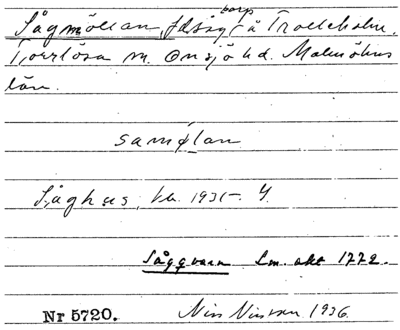 Sågmöllan, fd såg
torp
å Trolleholm,
Torrlösa sn. Onsjö hd. Malmöhus
län.
samølan
Såghus, bl. 1935. 4.
Sågqvarn Lm. akt 1772.
Nr 5720. Nils Nilsson 1936.